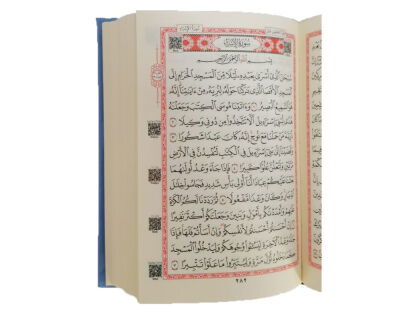 سُورَةُ الإِسْرَاءِ
بِسْمِ ٱللَّهِ ٱلرَّحْمَٰنِ ٱلرَّحِيمِ
سُبْحَٰنَ ٱلَّذِىٓ أَسْرَىٰ بِعَبْدِهِۦ لَيْلًا مِّنَ ٱلْمَسْجِدِ ٱلْحَرَامِ إِلَى
ٱلْمَسْجِدِ ٱلْأَقْصَا ٱلَّذِى بَٰرَكْنَا حَوْلَهُۥ لِنُرِيَهُۥ مِنْ ءَايَٰتِنَآ إِنَّهُۥ
هُوَ ٱلسَّمِيعُ ٱلْبَصِيرُ ١ وَءَاتَيْنَا مُوسَى ٱلْكِتَٰبَ وَجَعَلْنَٰهُ
هُدًى لِّبَنِىٓ إِسْرَٰٓءِيلَ أَلَّا تَتَّخِذُوا۟ مِن دُونِى وَكِيلًا ٢
ذُرِّيَّةَ مَنْ حَمَلْنَا مَعَ نُوحٍ إِنَّهُۥ كَانَ عَبْدًا شَكُورًا ٣
وَقَضَيْنَآ إِلَىٰ بَنِىٓ إِسْرَٰٓءِيلَ فِى ٱلْكِتَٰبِ لَتُفْسِدُنَّ فِى ٱلْأَرْضِ
مَرَّتَيْنِ وَلَتَعْلُنَّ عُلُوًّا كَبِيرًا ٤ فَإِذَا جَآءَ وَعْدُ أُولَىٰهُمَا
بَعَثْنَا عَلَيْكُمْ عِبَادًا لَّنَآ أُو۟لِى بَأْسٍ شَدِيدٍ فَجَاسُوا۟ خِلَٰلَ
ٱلدِّيَارِ وَكَانَ وَعْدًا مَّفْعُولًا ٥ ثُمَّ رَدَدْنَا لَكُمُ ٱلْكَرَّةَ
عَلَيْهِمْ وَأَمْدَدْنَٰكُم بِأَمْوَٰلٍ وَبَنِينَ وَجَعَلْنَٰكُمْ أَكْثَرَ نَفِيرًا ٦
إِنْ أَحْسَنتُمْ أَحْسَنتُمْ لِأَنفُسِكُمْ وَإِنْ أَسَأْتُمْ فَلَهَا فَإِذَا
جَآءَ وَعْدُ ٱلْءَاخِرَةِ لِيَسُۥٓـُٔوا۟ وُجُوهَكُمْ وَلِيَدْخُلُوا۟ ٱلْمَسْجِدَ
كَمَا دَخَلُوهُ أَوَّلَ مَرَّةٍ وَلِيُتَبِّرُوا۟ مَا عَلَوْا۟ تَتْبِيرًا ٧
٢٨٢